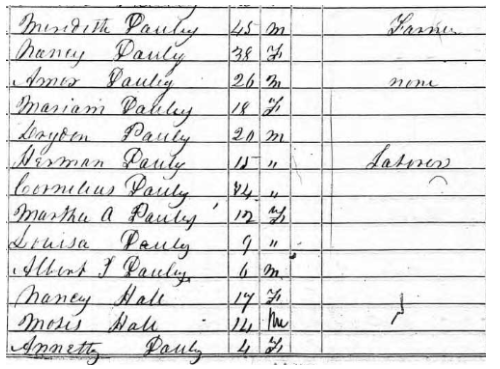 Meridith Pauley 45 m Farmer
Nancy Pauly 38 F
Amos Pauley 26 m none
Mariam Pauley 18 F
Drydon Pauly 20 m
Herman Pauly 15 " Laborer
Cornelius Pauly 14 "
Martha A Pauley 12 F
Louisa Pauly 9 "
Albert F Pauly 6 m
Nancy Hall 17 F
Moses Hall 14 m
Annetta Pauly 4 F